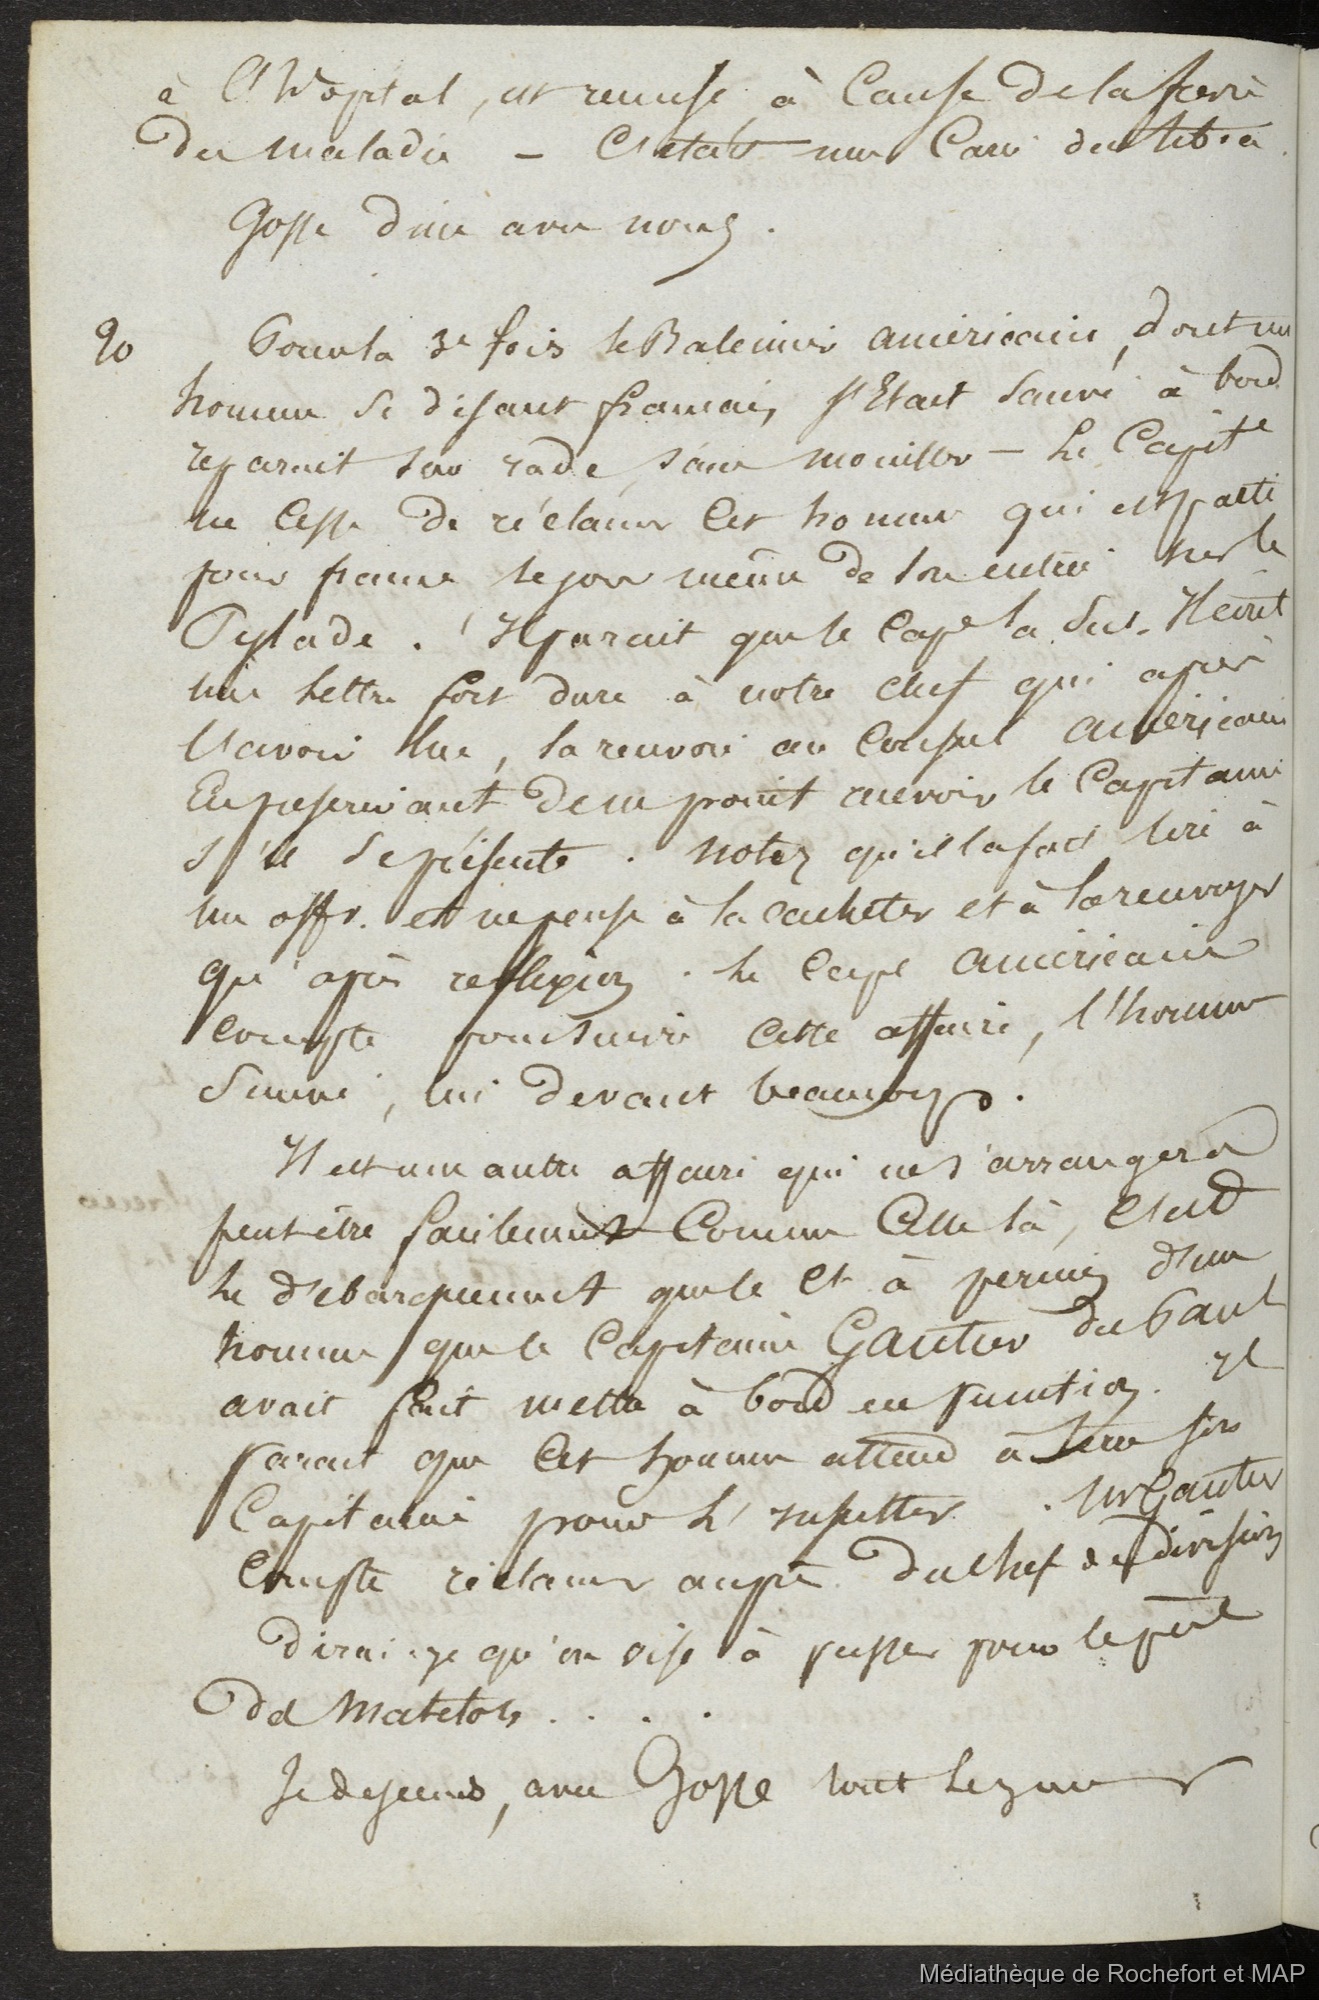 à l'hopital, est remise à Cause de la fievre
du malade — C'etait une Carie du tibia.
Gosse dine avec nous.
20 Pour la 3e fois le Baleinier américain, dont un
homme se disant francais, s'Etait Sauvé à bord
reparait sur rade, sans mouiller — Le Capite
ne Cesse de réclamer Cet homme qui est parti
pour france le jour même de son entrée sur le
Pylade. Il parait que le Cape la Sus. Il écrit
une lettre fort dure à notre chef qui après
l'avoir lue, la renvoie au Consul américain
En prescrivant de ne point recevoir le Capitaine
s'il se présente. Notez qu'il la fait lire à
un offr. et ne pense à la cacheter et à la renvoyer
qu'après reflexion. Le Cape américain
Compte poursuivre Cette affaire, l'homme
Sauvé, lui devant beaucoup.
Il est une autre affaire qui ne s'arrangera
peut être facilement Comme Celle là, C'est
le débarquement que le Ct à permis d'un
homme que le Capitaine Gautier du Paul
avait fait mettre à bord en punition. Il
parait que Cet homme attend à terre son
Capitaine pour l'insulter. Mr Gautier
Compte réclamer auprès du chef de division
dirai-je qu'on vise à passer pour le père
des Matelots . . . .
Je dejeune, avec Gosse tout le jour
Médiathèque de Rochefort et MAP